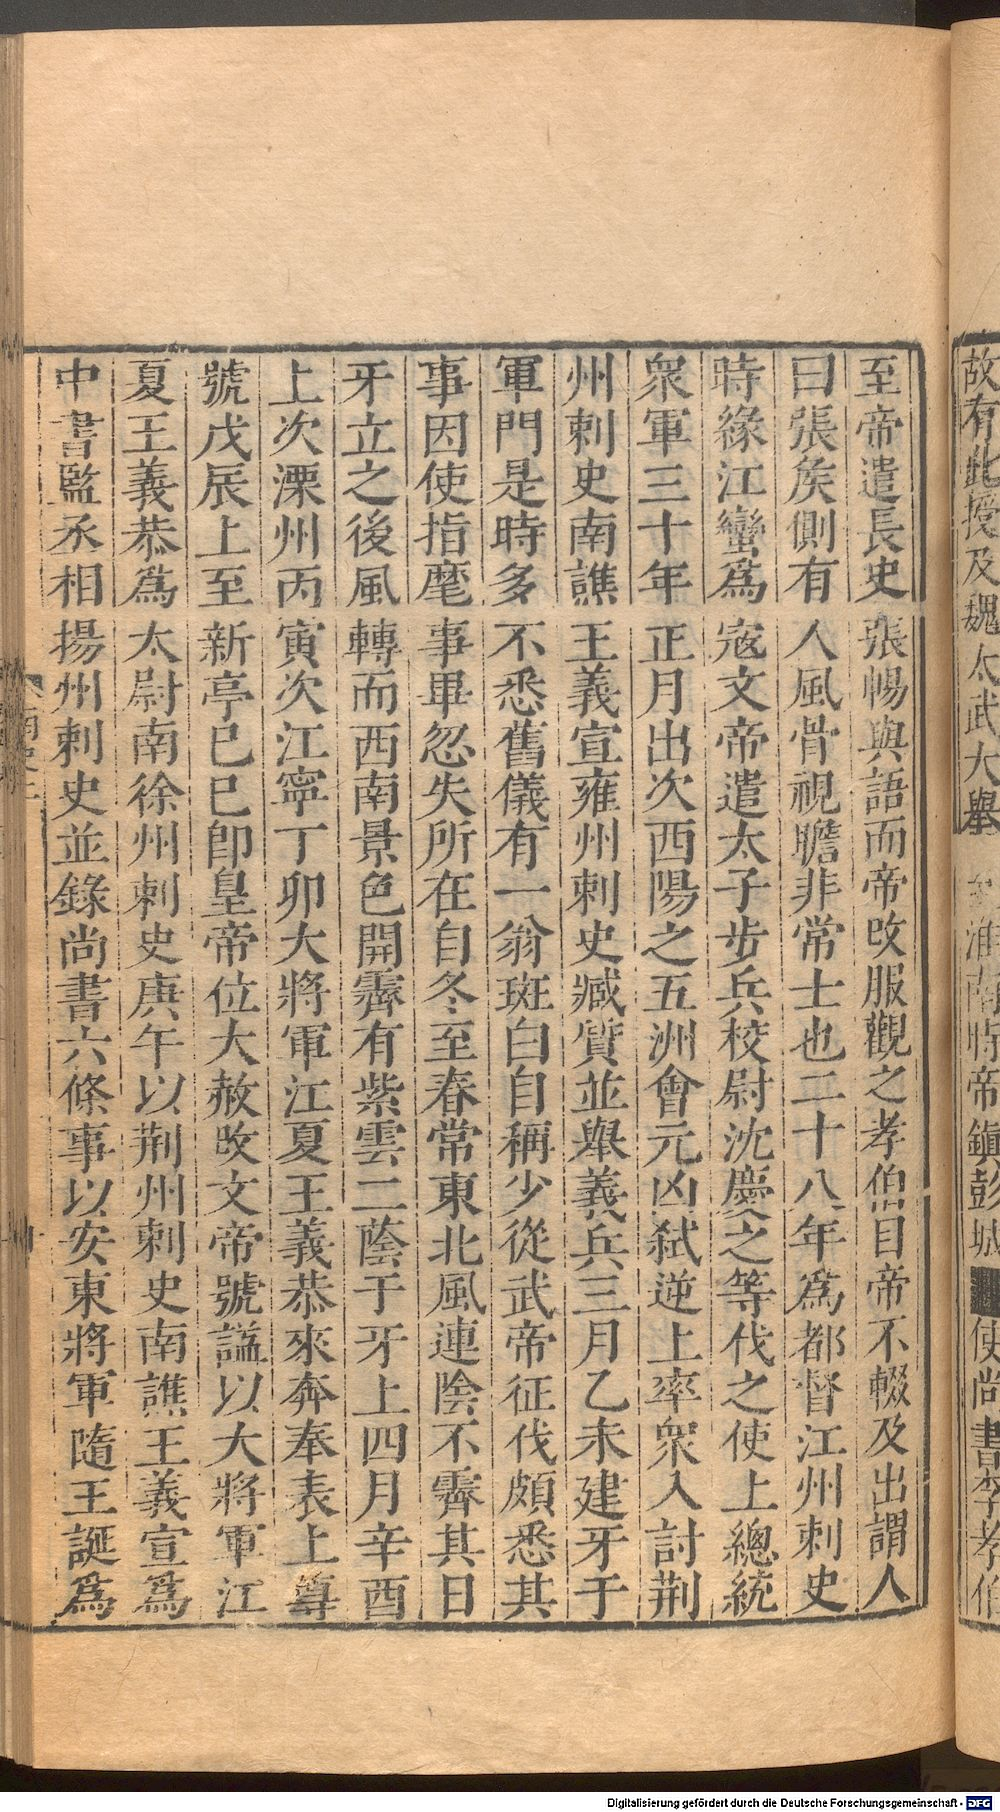 故有此授及魏太武大舉 至淮南時帝鎮彭城 使尚書李孝伯
至帝遣長史張暢與語而帝改服觀之孝伯目帝不輟及出謂人
曰張侯側有人風骨視瞻非常士也二十八年為都督江州刺史
時緣江蠻為寇文帝遣太子步兵校尉沈慶之等伐之使上總統
衆軍三十年正月出次西陽之五洲會元凶弒逆上率衆入討荆
州刺史南譙王義宣雍州刺史臧質並舉義兵三月乙未建牙于
軍門是時多不悉舊儀有一翁斑白自稱少從武帝征伐頗悉其
事因使指麾事畢忽失所在自冬至春常東北風連陰不霽其日
牙立之後風轉而西南景色開霽有紫雲二蔭于牙上四月辛酉
上次溧州丙寅次江寧丁卯大將軍江夏王義恭來奔奉表上尊
號戊辰上至新亭己巳即皇帝位大赦改文帝號謚以大將軍江
夏王義恭為太尉南徐州刺史庚午以荆州刺史南譙王義宣為
中書監丞相揚州刺史並錄尚書六條事以安東將軍隨王誕為
南史二
Digitalisierung gefördert durch die Deutsche Forschungsgemeinschaft - DFG